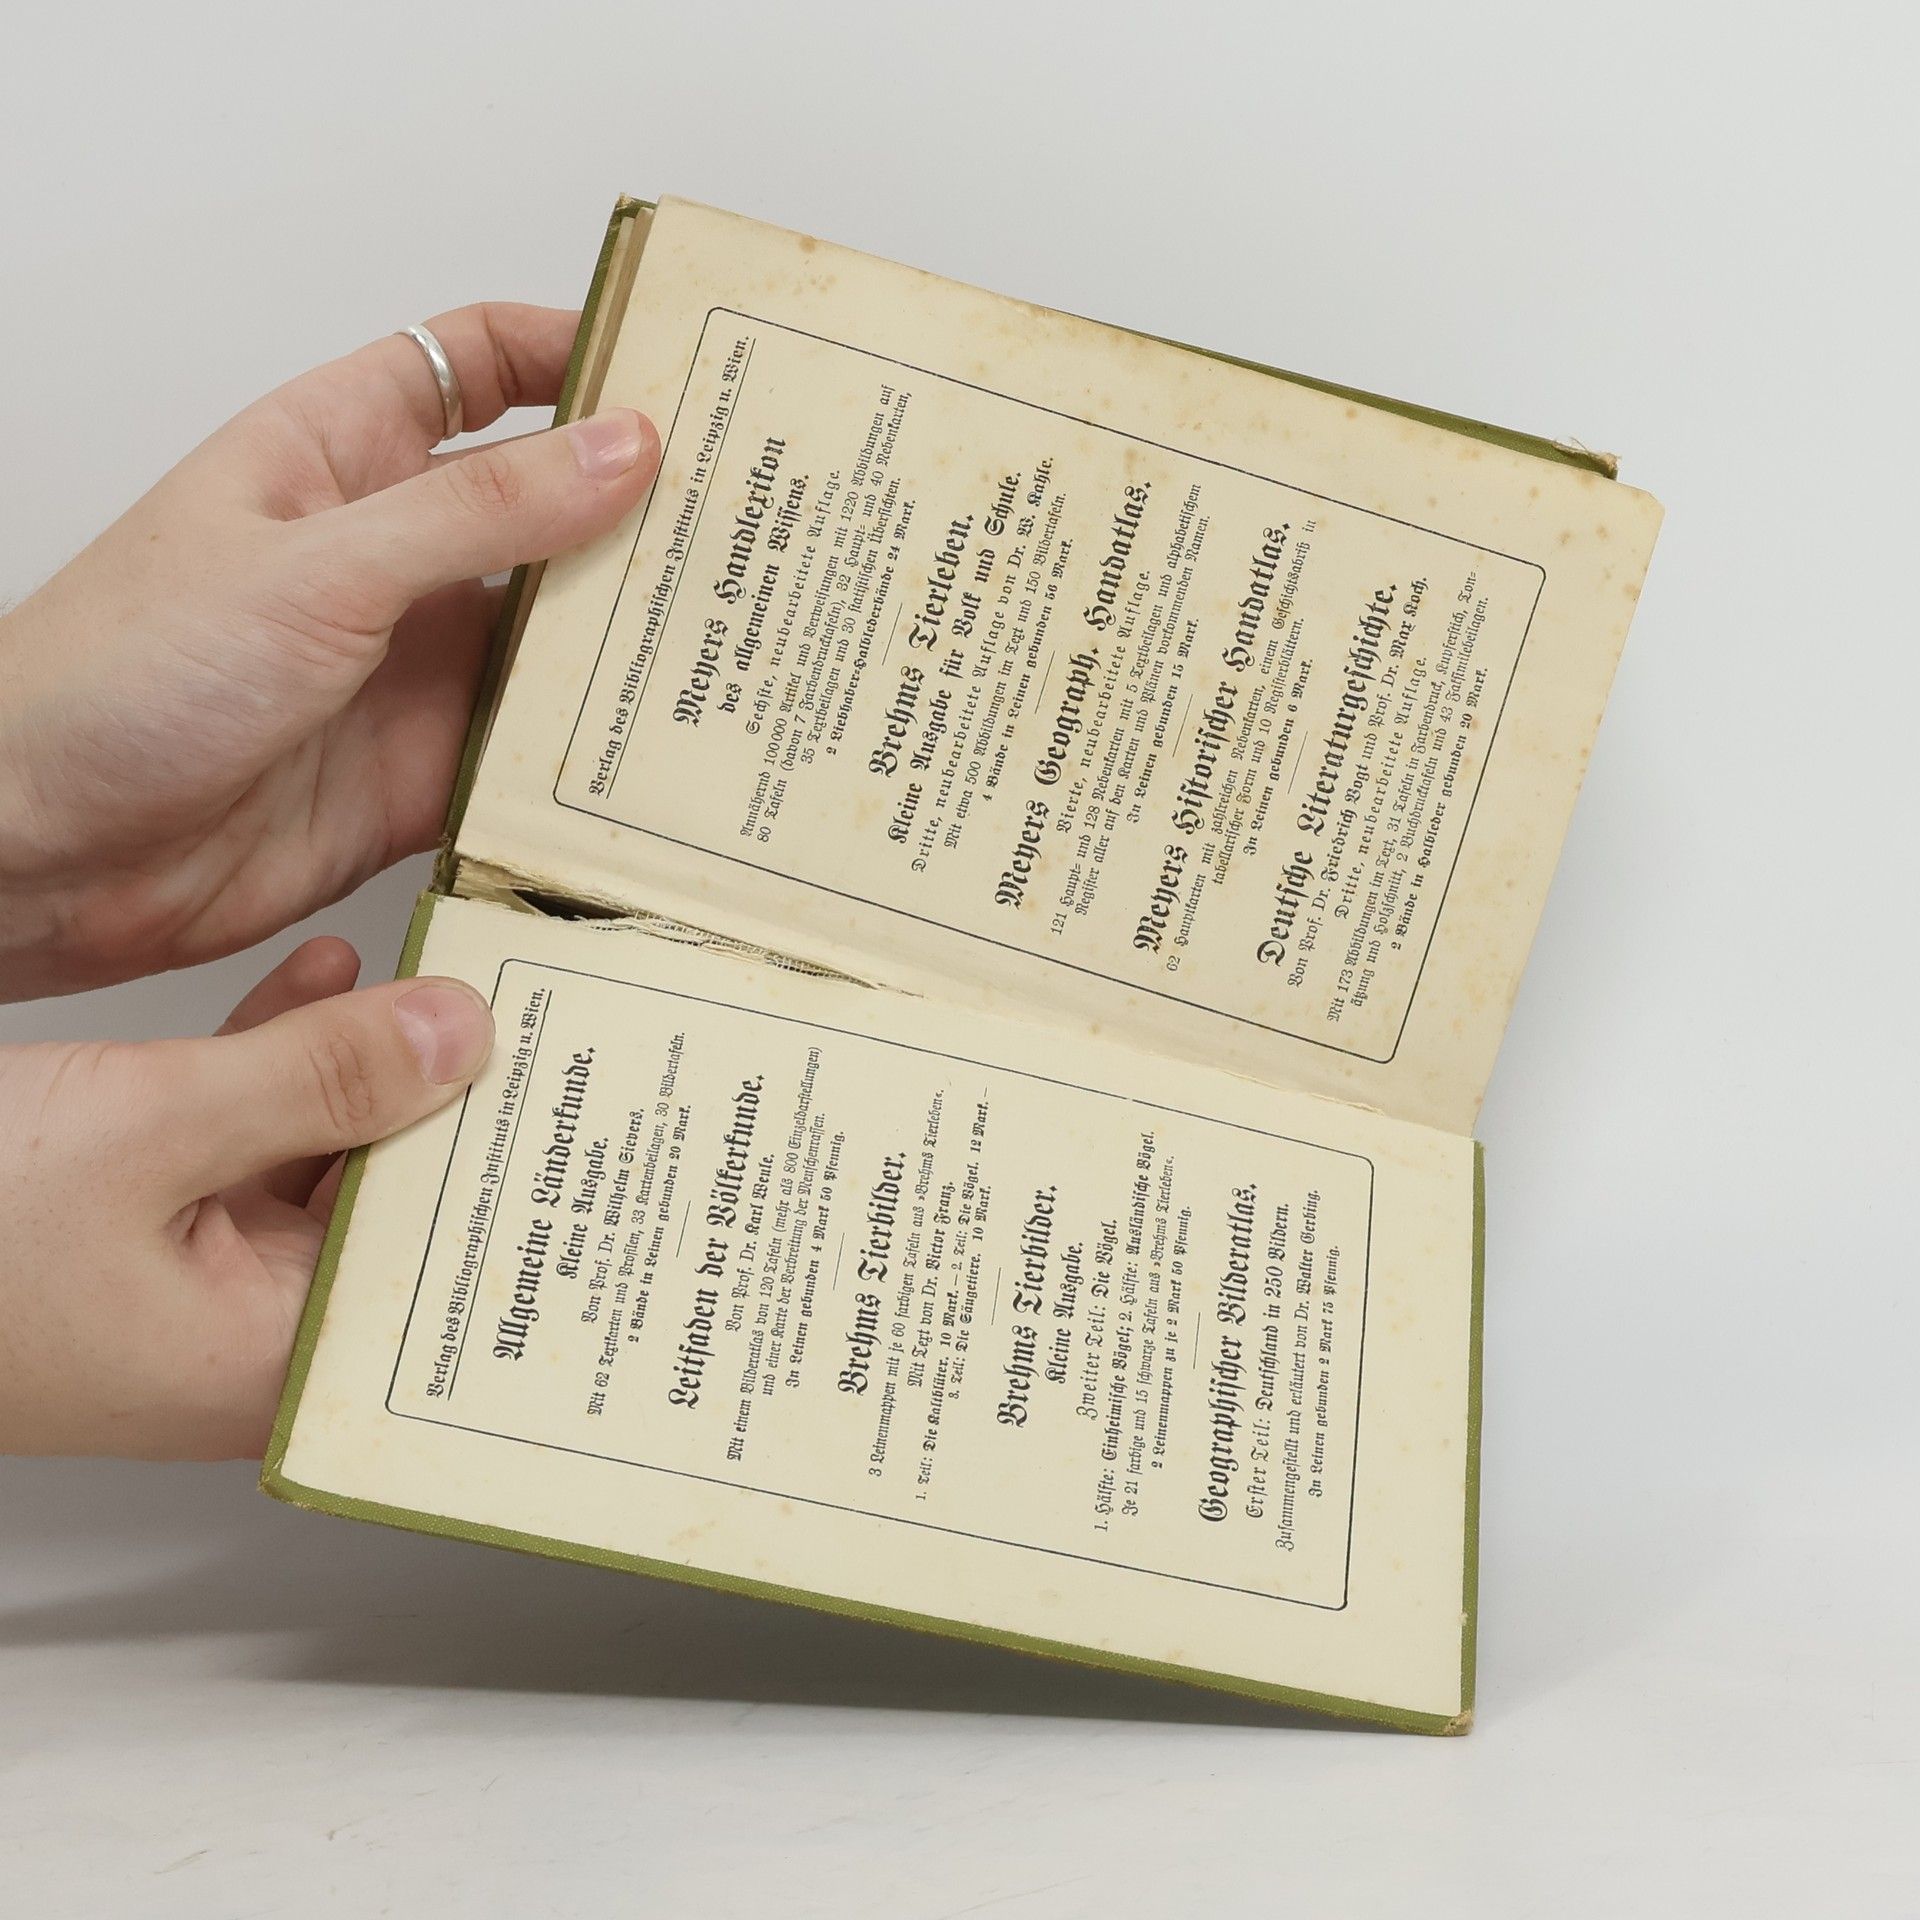 Verlag des Bibliographischen Instituts in Leipzig u. Wien.
Allgemeine Länderkunde.
Kleine Ausgabe.
Von Prof. Dr. Wilhelm Sievers.
Mit 62 Textkarten und Profilen, 33 Kartenbeilagen, 30 Bildertafeln.
2 Bände in Leinen gebunden 20 Mark.
Leitfaden der Völkerkunde.
Von Prof. Dr. Karl Weule.
Mit einem Bilderatlas von 120 Tafeln (mehr als 800 Einzeldarstellungen)
und einer Karte der Verbreitung der Menschenrassen.
In Leinen gebunden 4 Mark 50 Pfennig.
Brehms Tierbilder.
3 Leinenmappen mit je 60 farbigen Tafeln aus »Brehms Tierleben«.
Mit Text von Dr. Victor Franz.
1. Teil: Die Kaltblüter. 10 Mark. — 2. Teil: Die Vögel. 12 Mark. —
3. Teil: Die Säugetiere. 10 Mark.
Brehms Tierbilder.
Kleine Ausgabe.
Zweiter Teil: Die Vögel.
1. Hälfte: Einheimische Vögel; 2. Hälfte: Ausländische Vögel.
Je 21 farbige und 15 schwarze Tafeln aus »Brehms Tierleben«.
2 Leinenmappen zu je 2 Mark 50 Pfennig.
Geographischer Bilderatlas.
Erster Teil: Deutschland in 250 Bildern.
Zusammengestellt und erläutert von Dr. Walter Gerbing.
In Leinen gebunden 2 Mark 75 Pfennig.
Verlag des Bibliographischen Instituts in Leipzig u. Wien.
Meyers Handlexikon
des allgemeinen Wissens.
Sechste, neubearbeitete Auflage.
Annähernd 100000 Artikel und Verweisungen mit 1220 Abbildungen auf
80 Tafeln (davon 7 Farbendrucktafeln), 32 Haupt= und 40 Nebenkarten,
35 Textbeilagen und 30 statistischen Übersichten.
2 Liebhaber=Halblederbände 24 Mark.
Brehms Tierleben.
Kleine Ausgabe für Volk und Schule.
Dritte, neubearbeitete Auflage von Dr. W. Kahle.
Mit etwa 500 Abbildungen im Text und 150 Bildertafeln.
4 Bände in Leinen gebunden 56 Mark.
Meyers Geograph. Handatlas.
Vierte, neubearbeitete Auflage.
121 Haupt= und 128 Nebenkarten mit 5 Textbeilagen und alphabetischem
Register aller auf den Karten und Plänen vorkommenden Namen.
In Leinen gebunden 15 Mark.
Meyers Historischer Handatlas.
62 Hauptkarten mit zahlreichen Nebenkarten, einem Geschichtsabriß in
tabellarischer Form und 10 Registerblättern.
In Leinen gebunden 6 Mark.
Deutsche Literaturgeschichte.
Von Prof. Dr. Friedrich Vogt und Prof. Dr. Max Koch.
Dritte, neubearbeitete Auflage.
Mit 173 Abbildungen im Text, 31 Tafeln in Farbendruck, Kupferstich, Ton=
ätzung und Holzschnitt, 2 Buchdrucktafeln und 43 Faksimilebeilagen.
2 Bände in Halbleder gebunden 20 Mark.